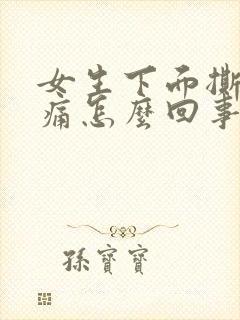 女生下面撕
痛怎麼回事
孫寶寶